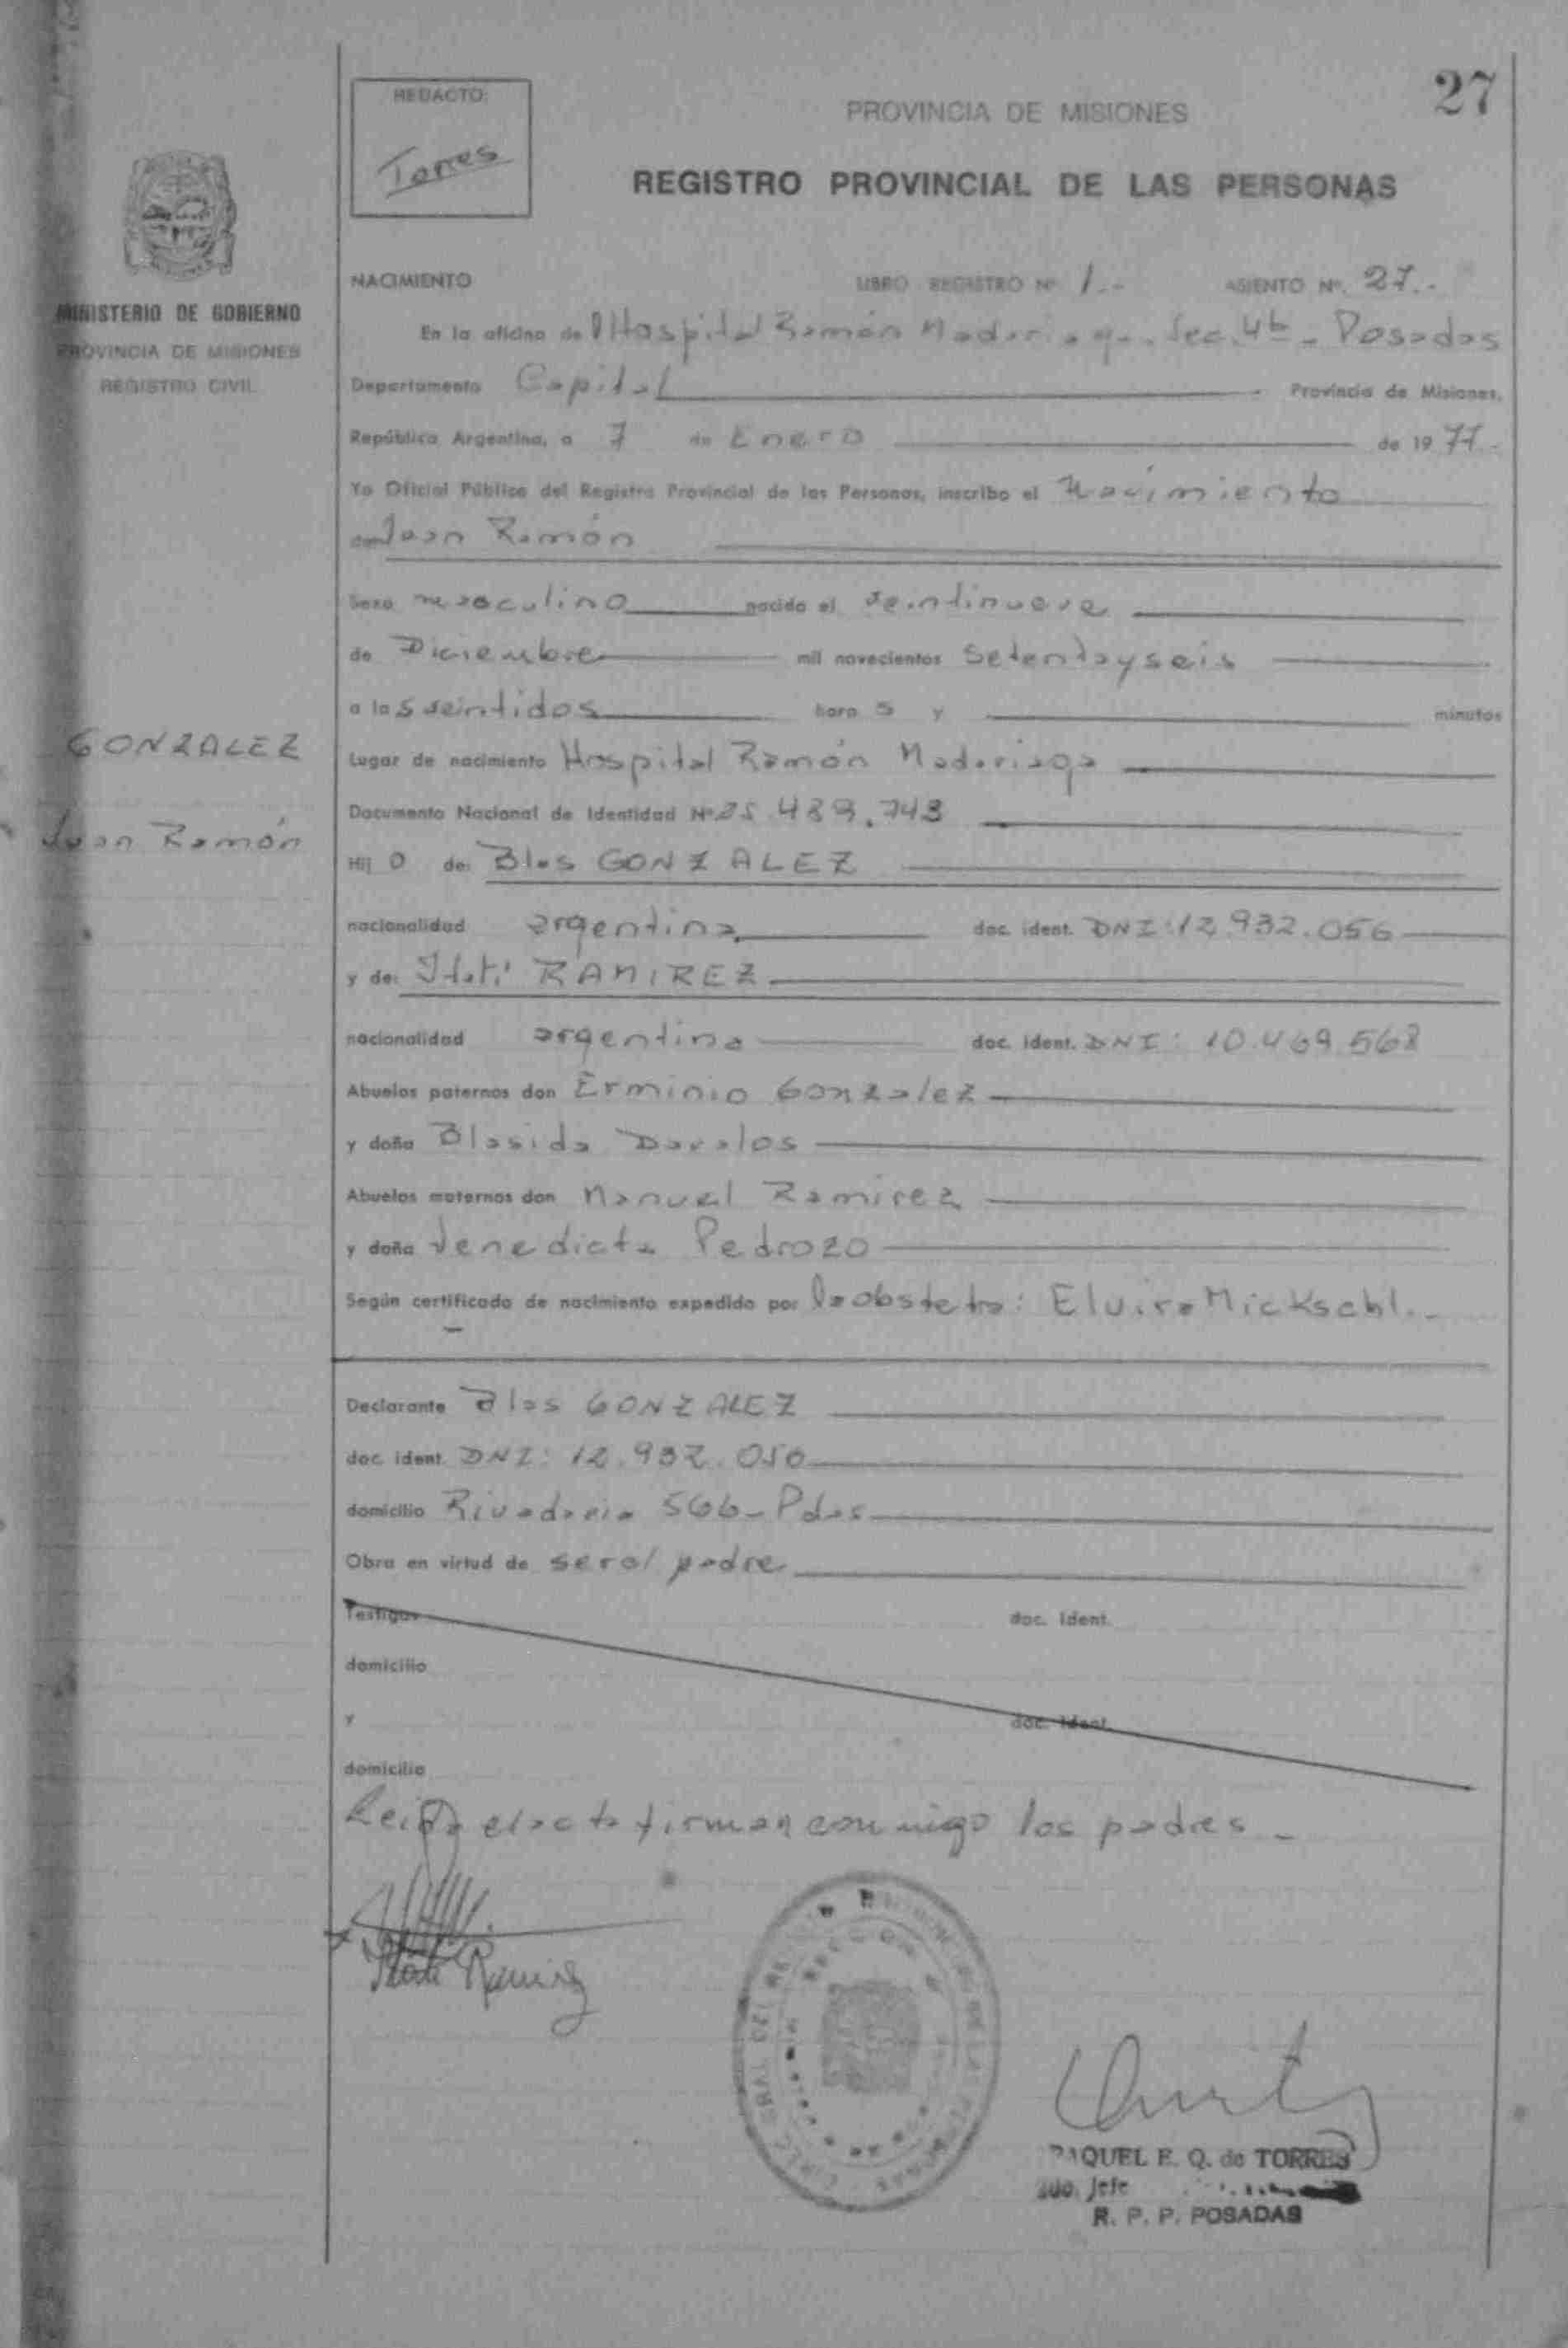 27
REDACTO:
Torres
PROVINCIA DE MISIONES
REGISTRO PROVINCIAL DE LAS PERSONAS
MINISTERIO DE GOBIERNO
PROVINCIA DE MISIONES
REGISTRO CIVIL
NACIMIENTO LIBRO REGISTRO Nº 1.- ASIENTO Nº. 27.-
En la oficina de Hospital Ramón Madariaga. Sec. 4ta - Posadas
Departamento Capital Provincia de Misiones,
República Argentina, a 7 de Enero de 1977.
Yo Oficial Público del Registro Provincial de las Personas, inscribo el Nacimiento
de Juan Ramón
Sexo masculino nacido el veintinueve
de Diciembre mil novecientos Setentayseis
a las veintidos horas y minutos
GONZALEZ
Lugar de nacimiento Hospital Ramón Madariaga
Documento Nacional de Identidad Nº 25.489.743
Juan Ramón
Hijo de: Blas GONZALEZ
nacionalidad argentina doc. ident. DNI: 12.932.056
y de: Itatí RAMIREZ
nacionalidad argentina doc. ident. DNI: 10.469.568
Abuelos paternos don Erminio Gonzalez
y doña Blasida Davalos
Abuelos maternos don Manuel Ramirez
y doña Venedicta Pedrozo
Según certificado de nacimiento expedido por la obstetra: Elvira Mickschl.-
Declarante Blas GONZALEZ
doc. ident. DNI: 12.932.050
domicilio Rivadavia 566 - Pdas
Obra en virtud de ser el padre
Testigos doc. ident.
domicilio
y doc. ident.
domicilio
Leida el acta firman conmigo los padres -
Itati Ramirez
RAQUEL E. Q. de TORRES
Jefe
R. P. P. POSADAS